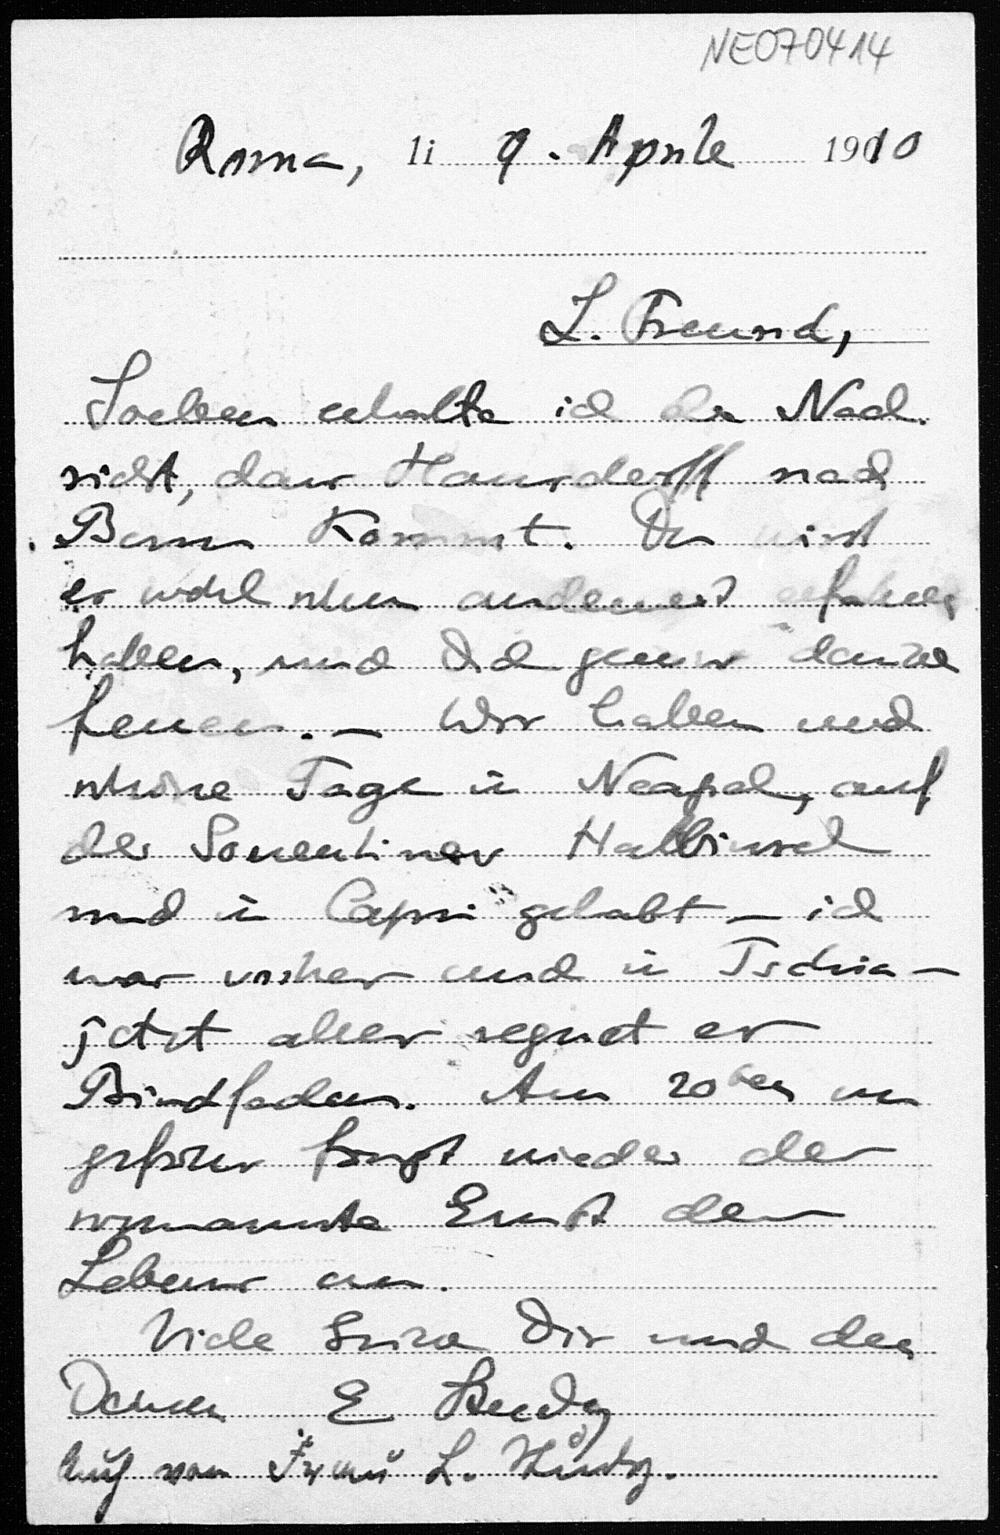 NE070414
Roma, li 9. Aprile 1910
L. Freund,
Soeben erhalte ich die Nach
richt, dass Hausdorff nach
Bonn kommt. Du wirst
es wohl schon anderweit erfahren
haben, und Dich gewiss darüber
freuen. – Wir haben
schöne Tage in Neapel, auf
der Sorrentiner Halbinsel
und in Capri gehabt – ich
war vorher auch in Ischia –
jetzt aber regnet es
Bindfaden. Am 20ten un
gefähr fängt wieder der
sogenannte Ernst des
Lebens an.
Viele Grüsse Dir und den
Deinen E
Auch von Frau L.